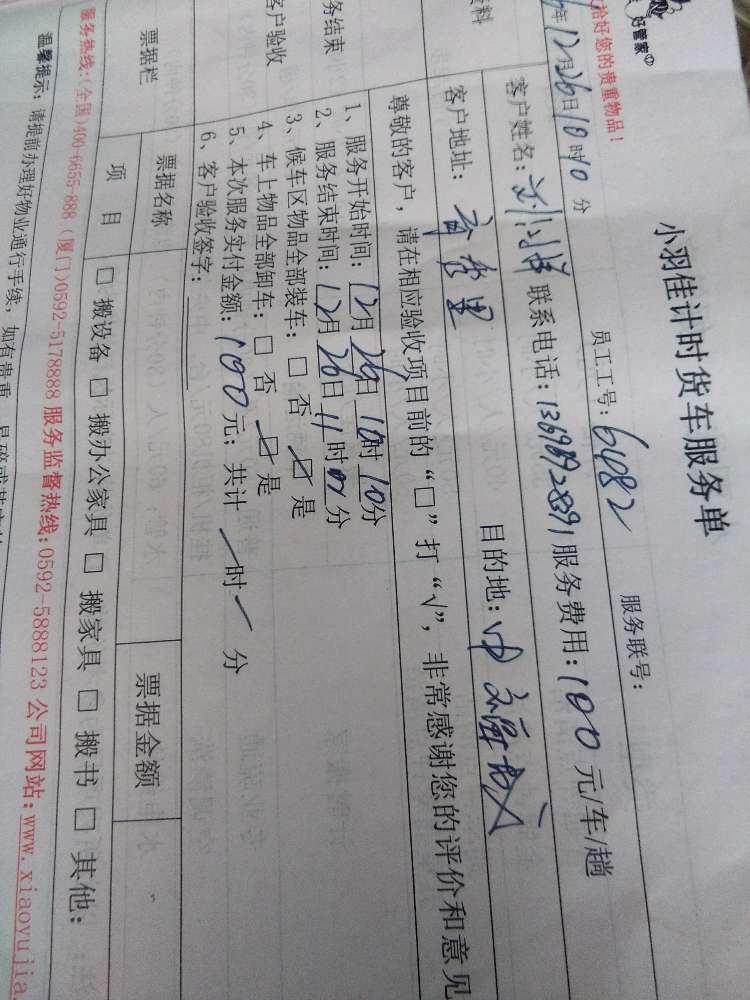 好管家
小羽佳计时货车服务单
恰好您的贵重物品！
年12月26日10时10分 员工工号：6482 服务联号：
客户姓名：刘 联系电话：13698928391 服务费用：100元/车/趟
资料
客户地址： 目的地：中
尊敬的客户，请在相应验收项目前的“□”打“√”，非常感谢您的评价和意见
务结束
客户验收
1、服务开始时间：12月26日10时10分
2、服务结束时间：12月26日11时 分
3、候车区物品全部装车：□否 ☑是
4、车上物品全部卸车：□否 ☑是
5、本次服务实付金额：100元；共计 时 分
6、客户验收签字：
票据栏 票据名称 票据金额
项目 □搬设备 □搬办公家具 □搬家具 □搬书 □其他：
服务热线：(全国)400-6655-888 (厦门)0592-5178888 服务监督热线：0592-5888123 公司网站：www.xiaoyujia
温馨提示：请提前办理好物业通行手续，如有贵重、易碎或